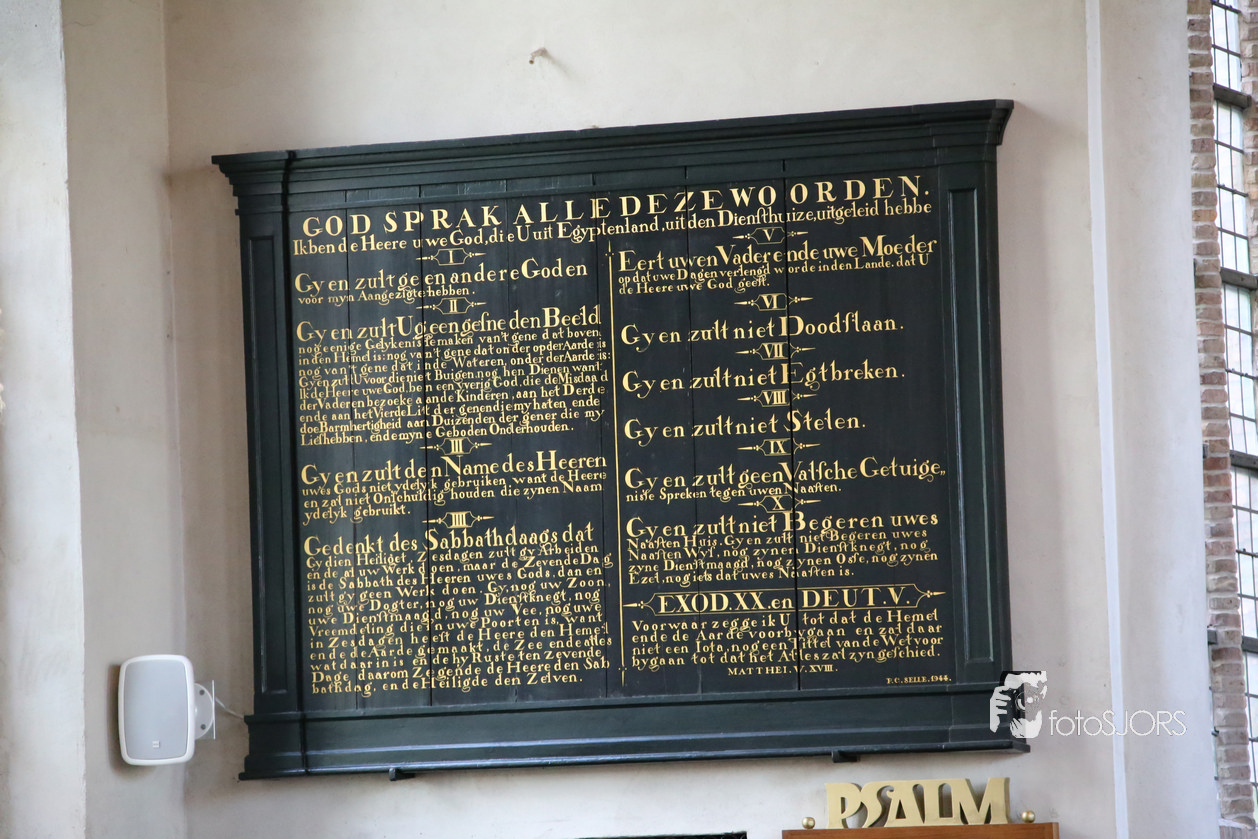 GOD SPRAK ALLE DEZE WOORDEN.
Ik ben de Heere uwe God, die U uit Egyptenland, uit den Diensthuize, uitgeleid hebbe
I
Gy en zult geen andere Goden
voor myn Aangezigte hebben.
II
Gy en zult U geen gesneden Beeld
nog eenige Gelykenis maken van't gene dat boven
in den Hemel is: nog van't gene dat onder op der Aarde is
nog van't gene dat in de Wateren, onder der Aarde is:
Gy en zult U voor die niet Buigen nog hen Dienen want
Ik de Heere uwe God, ben een yverig God, die de Misdaad
der Vaderen bezoeke aan de Kinderen, aan het Derde
ende aan het Vierde Lit der genen die my haten, ende
doe Barmhertigheid aan Duizenden der gener die my
Liefhebben, ende myne Geboden Onderhouden.
III
Gy en zult den Name des Heeren
uwes Gods niet ydelyk gebruiken want de Heere
en zal niet Onschuldig houden die zynen Naam
ydelyk gebruikt.
IIII
Gedenkt des Sabbathdaags dat
Gy dien Heiliget, Zes dagen zult gy Arbeiden
ende al uw Werk doen, maar de Zevende Dag
is de Sabbath des Heeren uwes Gods, dan en
zult gy geen Werk doen, Gy, nog uw Zoon,
nog uwe Dogter, nog uw Dienstknegt, nog
uwe Dienstmaagd, nog uw Vee, nog uwe
Vremdeling die in uwe Poorten is, want
in Zes dagen heeft de Heere den Hemel
ende de Aarde gemaakt, de Zee ende alles
wat daar in is ende hy Ruste ten Zevende
Dage daarom Zegende de Heere den Sab
bathdag, ende Heiligde den Zelven.
V
Eert uwen Vader ende uwe Moeder
op dat uwe Dagen verlengd worde in den Lande, dat U
de Heere uwe God geeft.
VI
Gy en zult niet Doodslaan.
VII
Gy en zult niet Egtbreken.
VIII
Gy en zult niet Stelen.
IX
Gy en zult geen Valsche Getuige„
nisse Spreken tegen uwen Naasten.
X
Gy en zult niet Begeren uwes
Naasten Huis. Gy en zult niet Begeren uwes
Naasten Wyf, nog zynen Dienstknegt, nog
zyne Dienstmaagd, nog zynen Osse, nog zynen
Ezel, nog iets dat uwes Naasten is.
EXOD. XX. en DEUT. V.
Voorwaar zegge ik U tot dat de Hemel
ende de Aarde voorbygaan en zal daar
niet een Iota, nog een Tittel van de Wet voor
bygaan tot dat het Alles zal zyn geschied.
MATTHEI. V. XVIII.
F.C. SELLE. 1944.
fotoSJORS
PSALM